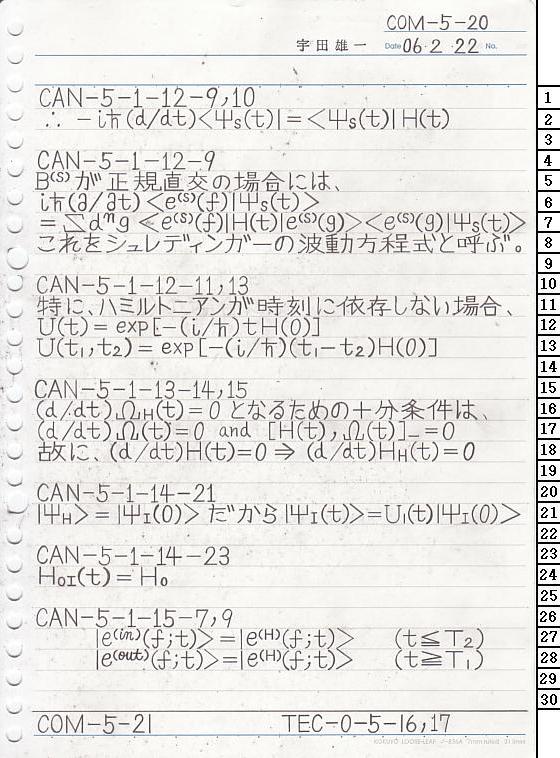 COM-5-20
宇田雄一 Date 06.2.22 No.
CAN-5-1-12-9,10
∴ -iħ(d/dt)<Ψs(t)|=<Ψs(t)|H(t)
CAN-5-1-12-9
B⁽ˢ⁾が正規直交の場合には、
iħ(∂/∂t)<e⁽ˢ⁾(f)|Ψs(t)>
=∑dⁿg <e⁽ˢ⁾(f)|H(t)|e⁽ˢ⁾(g)><e⁽ˢ⁾(g)|Ψs(t)>
これをシュレディンガーの波動方程式と呼ぶ。
CAN-5-1-12-11,13
特に、ハミルトニアンが時刻に依存しない場合、
U(t)=exp[-(i/ħ)tH(0)]
U(t₁,t₂)=exp[-(i/ħ)(t₁-t₂)H(0)]
CAN-5-1-13-14,15
(d/dt)Ω_H(t)=0 となるための十分条件は、
(d/dt)Ω(t)=0 and [H(t),Ω(t)]₋=0
故に、(d/dt)H(t)=0 ⇒ (d/dt)H_H(t)=0
CAN-5-1-14-21
|Ψ_H>=|Ψ_I(0)> だから |Ψ_I(t)>=U_I(t)|Ψ_I(0)>
CAN-5-1-14-23
H₀I(t)=H₀
CAN-5-1-15-7,9
|e⁽ⁱⁿ⁾(f;t)>=|e⁽ᴴ⁾(f;t)> (t≦T₂)
|e⁽ᵒᵘᵗ⁾(f;t)>=|e⁽ᴴ⁾(f;t)> (t≧T₁)
COM-5-21 TEC-0-5-16,17
KOKUYO LOOSE-LEAF ノ-836A 7mm ruled 31 lines
1
2
3
4
5
6
7
8
9
10
11
12
13
14
15
16
17
18
19
20
21
22
23
24
25
26
27
28
29
30